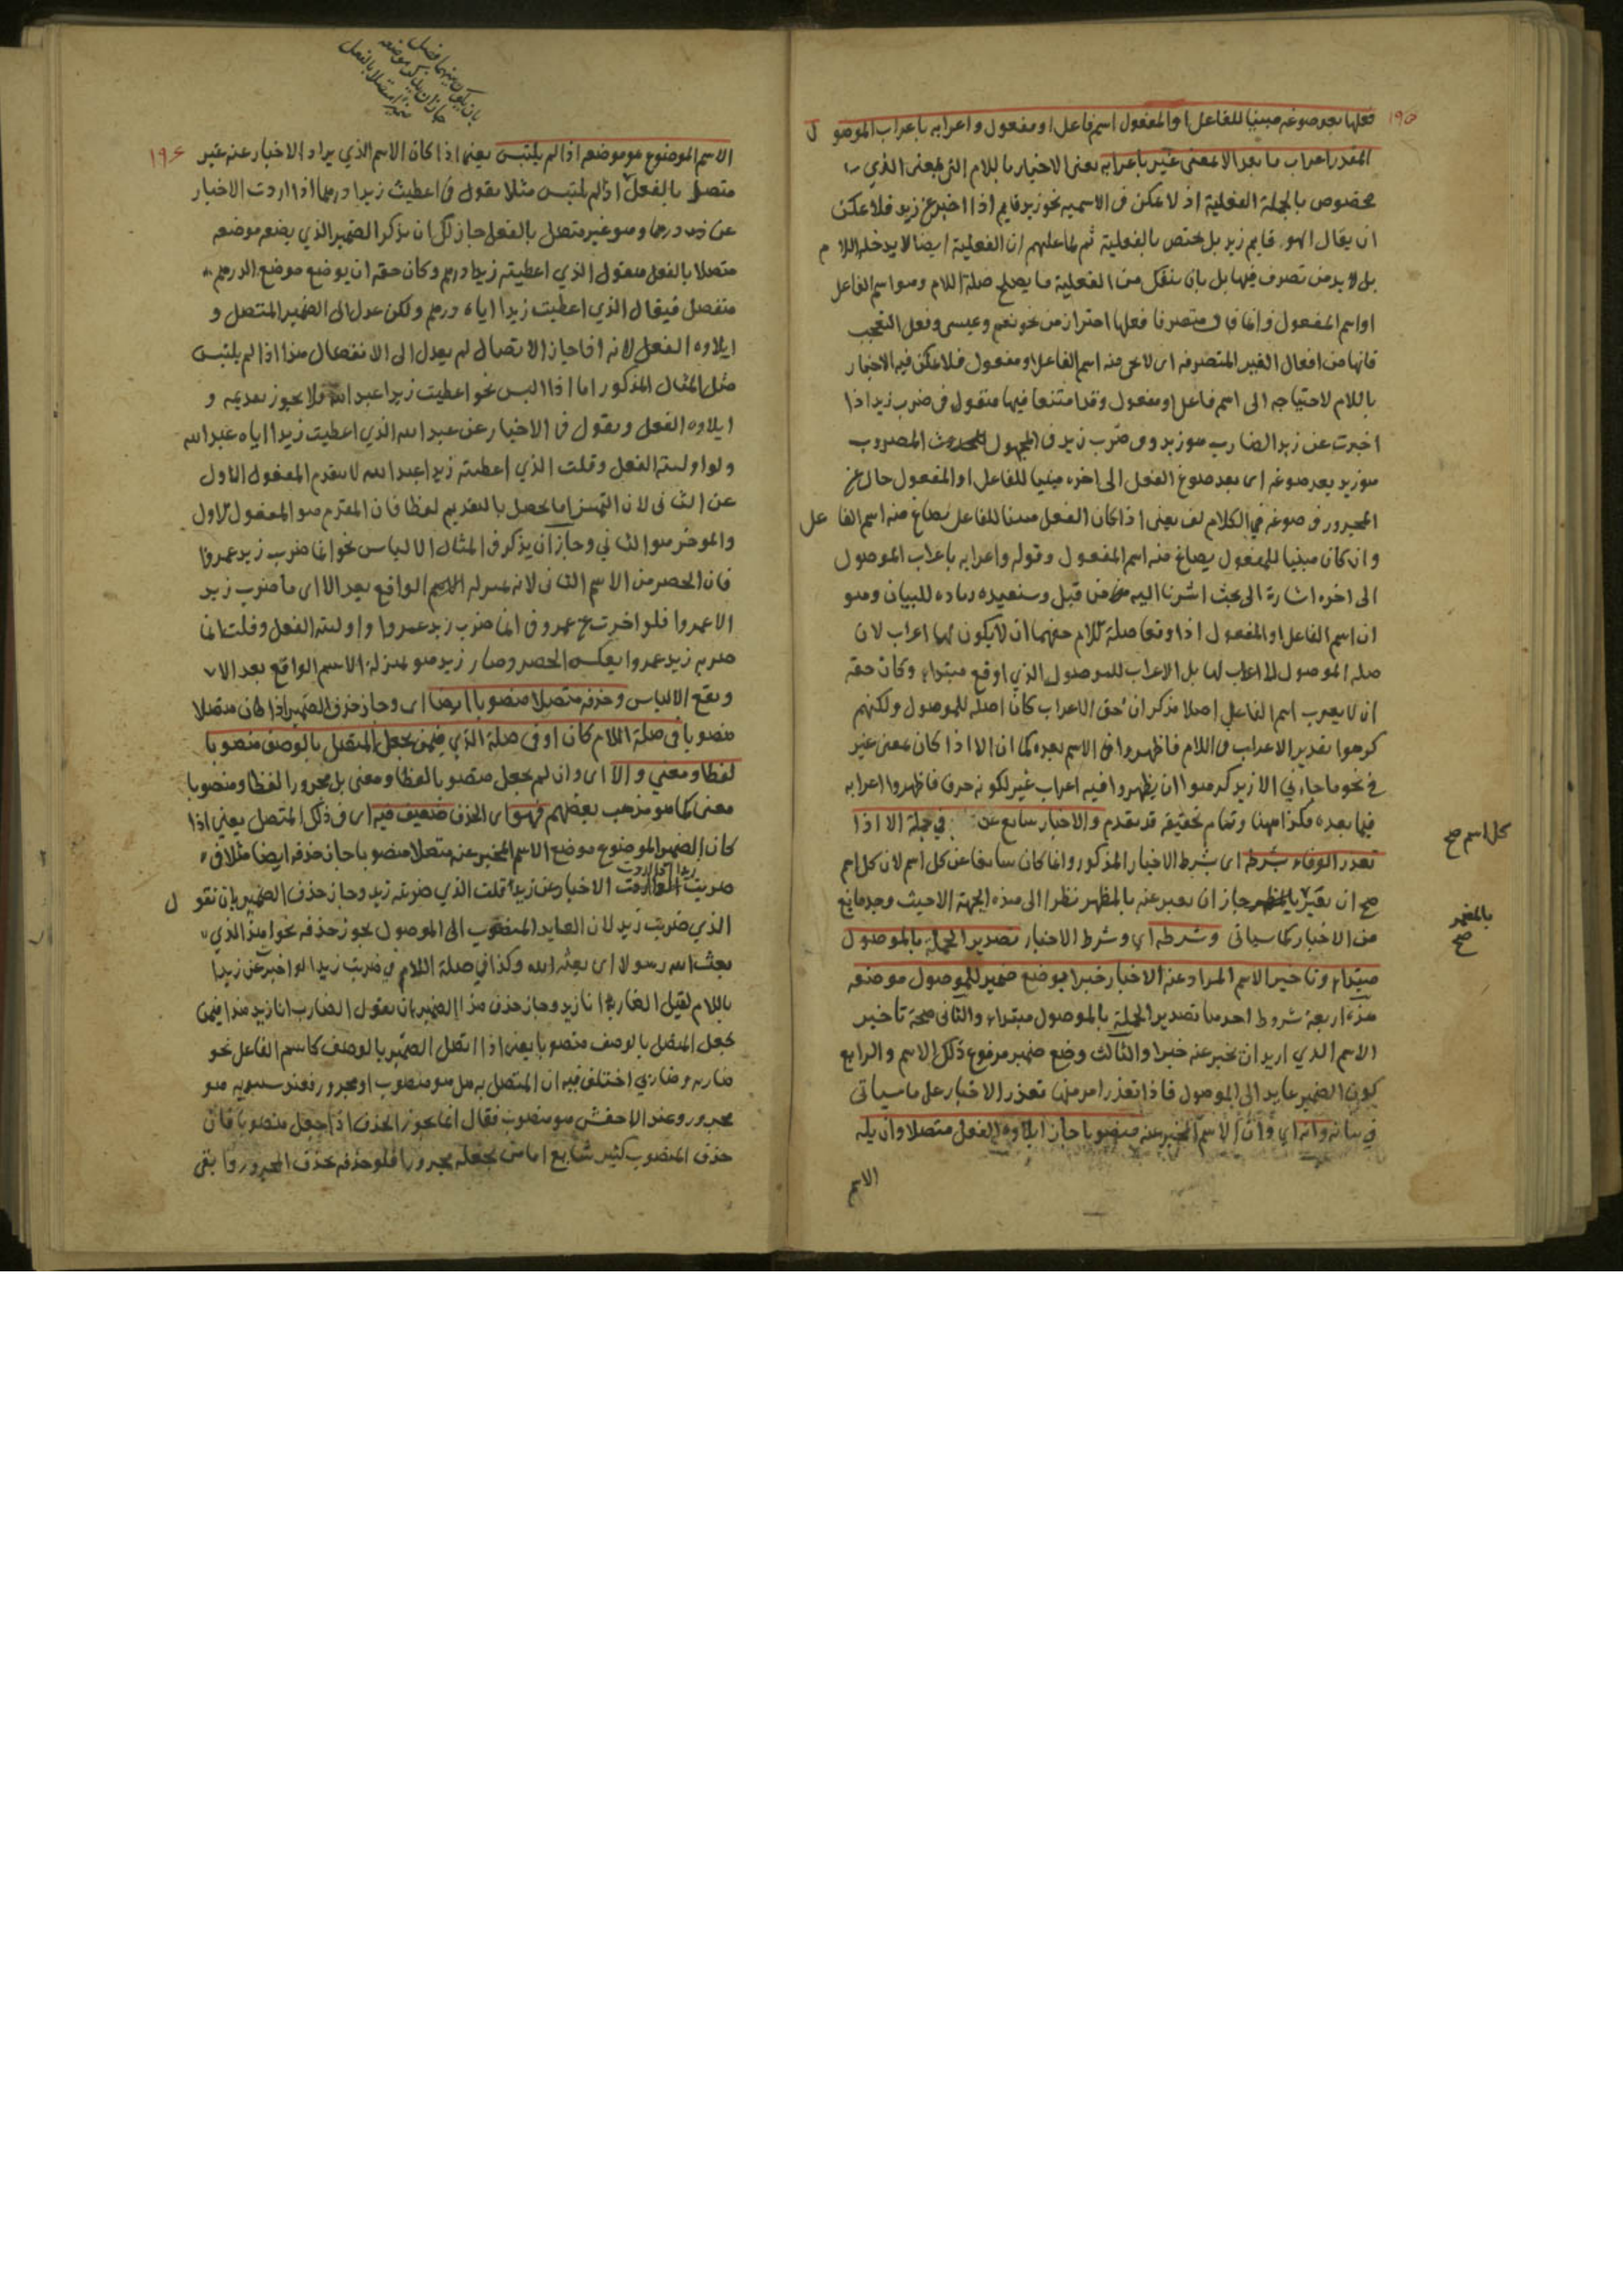 ١٩٥
فعلها بعد صوغه مبنيا للفاعل او المفعول اسم فاعل او مفعول واعرابه باعراب الموصول
المقدر اعراب ما بعد الا بمعنى غير باعرابه يعنى الاخبار باللام التى بمعنى الذي
مخصوص بالجملة الفعلية اذ لا يمكن فى الاسميه نحو زيد قايم اذا اخبر عن زيد فلا يمكن
ان يقال الهو قايم زيد بل يختص بالفعلية ثم ان الفعلية ايضا لا يدخله اللام
بل لا بد من تصرف فيها بل بان ينفك من الفعلية ما يصلح صلة اللام وهو اسم الفاعل
او اسم المفعول وانما قال متصرفا فعلها احتراز من نحو نعم وعيسى وفعل التعجب
فانها من افعال الغير المتصرفه اى لا يجى منه اسم الفاعل او مفعول فلا يمكن فيه الاخبار
باللام لاحتياجه الى اسم فاعل او مفعول وقد امتنعا فيها فتقول فى ضرب زيد اذا
اخبرت عن زيد الضارب هو زيد وفى ضرب زيد فى المجهول المضروب
هو زيد بعد صوغه اى بعد صوغ الفعل الى اخره مبنيا للفاعل او المفعول حال عن
المجرور فى صوغه فى الكلام لف يعنى اذا كان الفعل مبنيا للفاعل يصاغ منه اسم الفاعل
وان كان مبنيا للمفعول يصاغ منه اسم المفعول وقوله واعرابه باعراب الموصول
الى اخره اشارة الى بحث اشرنا اليه من قبل وسنعيده زياده للبيان وهو
ان اسم الفاعل او المفعول اذا وقعا صلة للام حقهما ان لا يكون لها اعراب لان
صله الموصول لا اعراب لها بل الاعراب للموصول الذي اوقع مبتداء وكان حقه
ان لا يعرب اسم الفاعل اصلا فذكر ان حق الاعراب كان اصله للموصول ولكنهم
كرهوا تقدير الاعراب فى اللام فاظهروا فى الاسم بعده كما ان الا اذا كان بمعنى غير
فى نحو ما جاءنى الا زيد كرهوا ان يظهروا فيه اعراب غير لكونه حرف فاظهروا اعرابه
فيما بعده فكذا ههنا وتمام تحقيقه قد تقدم والاخبار سايع عن فى جملة الا اذا
كل اسم صح
تعذر الوفاء بشرطه اى بشرط الاخبار المذكور وانما كان سايغا عن كل اسم لان كل اسم
صح ان يعبر جاز ان يعبر عنه بالمظهر نظرا الى هذه الجهة الا حيث وجد مانع
بالمضمر صح
من الاخبار كما سياتى وشرطه اي وشرط الاخبار تصدير الجملة بالموصول
مبتداء وتاخير الاسم المراد عنه الاخبار خبرا بوضع ضمير للموصول موضعه
هذه اربعة شروط احدها تصدير الجملة بالموصول مبتداء والثانى صحة تاخير
الاسم الذي اريد ان يخبر عنه خبرا والثالث وضع ضمير مرفوع ذلك الاسم والرابع
كون الضمير عايد الى الموصول فاذا تعذر امر منها تعذر الاخبار على ما سياتى
فى بيانه وانه اي وان الاسم المخبر عنه منصوبا جاز ايلاوه الفعل متصلا وان يله
الاسم
بان يكون بينهما فصل
١٩٤
الاسم الموضوع هو موضعه اذا لم يلتبس يعنى اذا كان الاسم الذي يراد الاخبار عنه غير
متصل بالفعل اذا لم يلتبس مثلا تقول فى اعطيت زيدا درهما اذا اردت الاخبار
عن درهما وهو غير متصل بالفعل جاز لك ان تذكر الضمير الذي يضعه موضعه
متصلا بالفعل فتقول الذي اعطيته زيدا درهم وكان حقه ان يوضع موضع الدرهم
منفصل فيقال الذي اعطيت زيدا اياه درهم ولكن عدل الى الضمير المتصل و
ايلاوه الفعل لانه اذا جاز الاتصال لم يعدل الى الانفصال هذا اذا لم يلتبس
مثل المثال المذكور اما اذا التبس نحو اعطيت زيدا عبد الله فلا يجوز تقديمه و
ايلاوه الفعل وتقول فى الاخبار عن عبد الله الذي اعطيت زيدا اياه عبد الله
ولو اوليته الفعل وقلت الذي اعطيته زيدا عبد الله لا يتقدم المفعول الاول
عن الثانى لان التميز انما يحصل بالتقديم لفظا فان المقدم هو المفعول الاول
والموخر هو الثاني وجاز ان يذكر فى المثال الالباس نحو انما ضرب زيد عمروا
فان الحصر من الاسم الثانى لانه بمنزلة الاسم الواقع بعد الا اى ما ضرب زيد
الا عمروا فلو اخبرت عن عمرو فى انما ضرب زيد عمروا واوليته الفعل وقلت انما
ضربه زيد عمروا يعكس الحصر وصار زيد هو بمنزلة الاسم الواقع بعد الا
ويقع الالباس وحذفه متصلا منصوبا ايضا اى وجاز حذف الضمير اذا كان متصلا
منصوبا فى صلة اللام كان او فى صلة الذي فيمن يجعل المتصل بالوصف منصوبا
لفظا ومعنى والا اى وان لم يجعل منصوبا لفظا ومعنى بل مجرورا لفظا ومنصوبا
معنى كما هو مذهب بعضهم فهو اى الحذف ضعيف فيه اى فى ذلك المتصل يعنى اذا
كان الضمير الموضوع موضع الاسم المخبر عنه متصلا منصوبا جاز حذفه ايضا مثلا فى
ضربت زيدا الاخبار عن زيد قلت الذي ضربته زيد وجاز حذف الضمير بان تقول
الذي ضربت زيد لان العايد المنصوب الى الموصول يجوز حذفه نحو اهذا الذي
بعث الله رسولا اى بعثه الله وكذا فى صلة اللام فى ضربت زيدا لو اخبر عن زيدا
باللام لقيل الضاربه انا زيد وجاز حذف هذا الضمير بان تقول الضارب انا زيد هذا فيمن
يجعل المتصل بالوصف منصوبا يعنى اذا اتصل الضمير بالوصف كاسم الفاعل نحو
ضاربه وضاربي اختلف فيه ان المتصل به هل هو منصوب او مجرور فعند سيبويه هو
مجرور وعند الاخفش هو منصوب فقال انما يجوز الحذف اذا جعل منصوبا فان
حذف المنصوب كثير شايع اما من يجعله مجرورا فلو حذفه يحذف المجرور وابقى